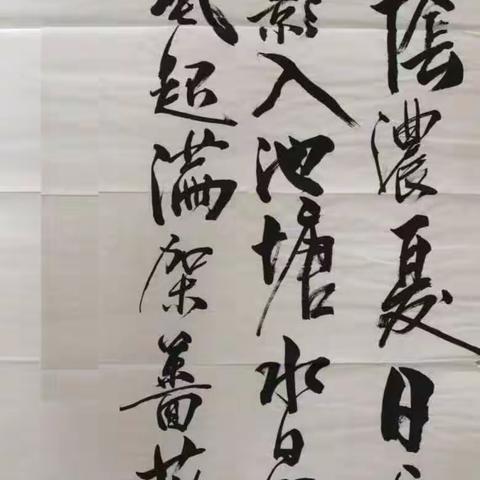 陰濃夏日
影入池塘水
起滿架薔